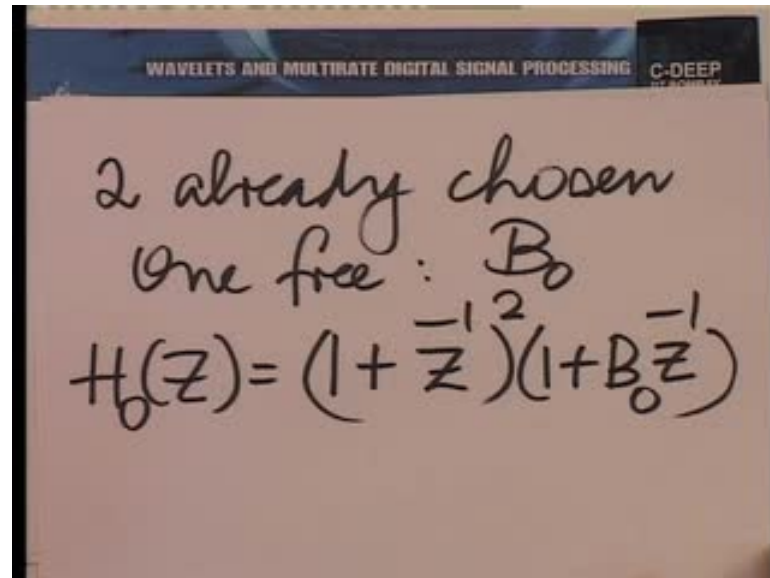 WAVELETS AND MULTIRATE DIGITAL SIGNAL PROCESSING C-DEEP
2 already chosen
One free : B₀
H₀(Z) = (1 + Z⁻¹)²(1+B₀Z⁻¹)